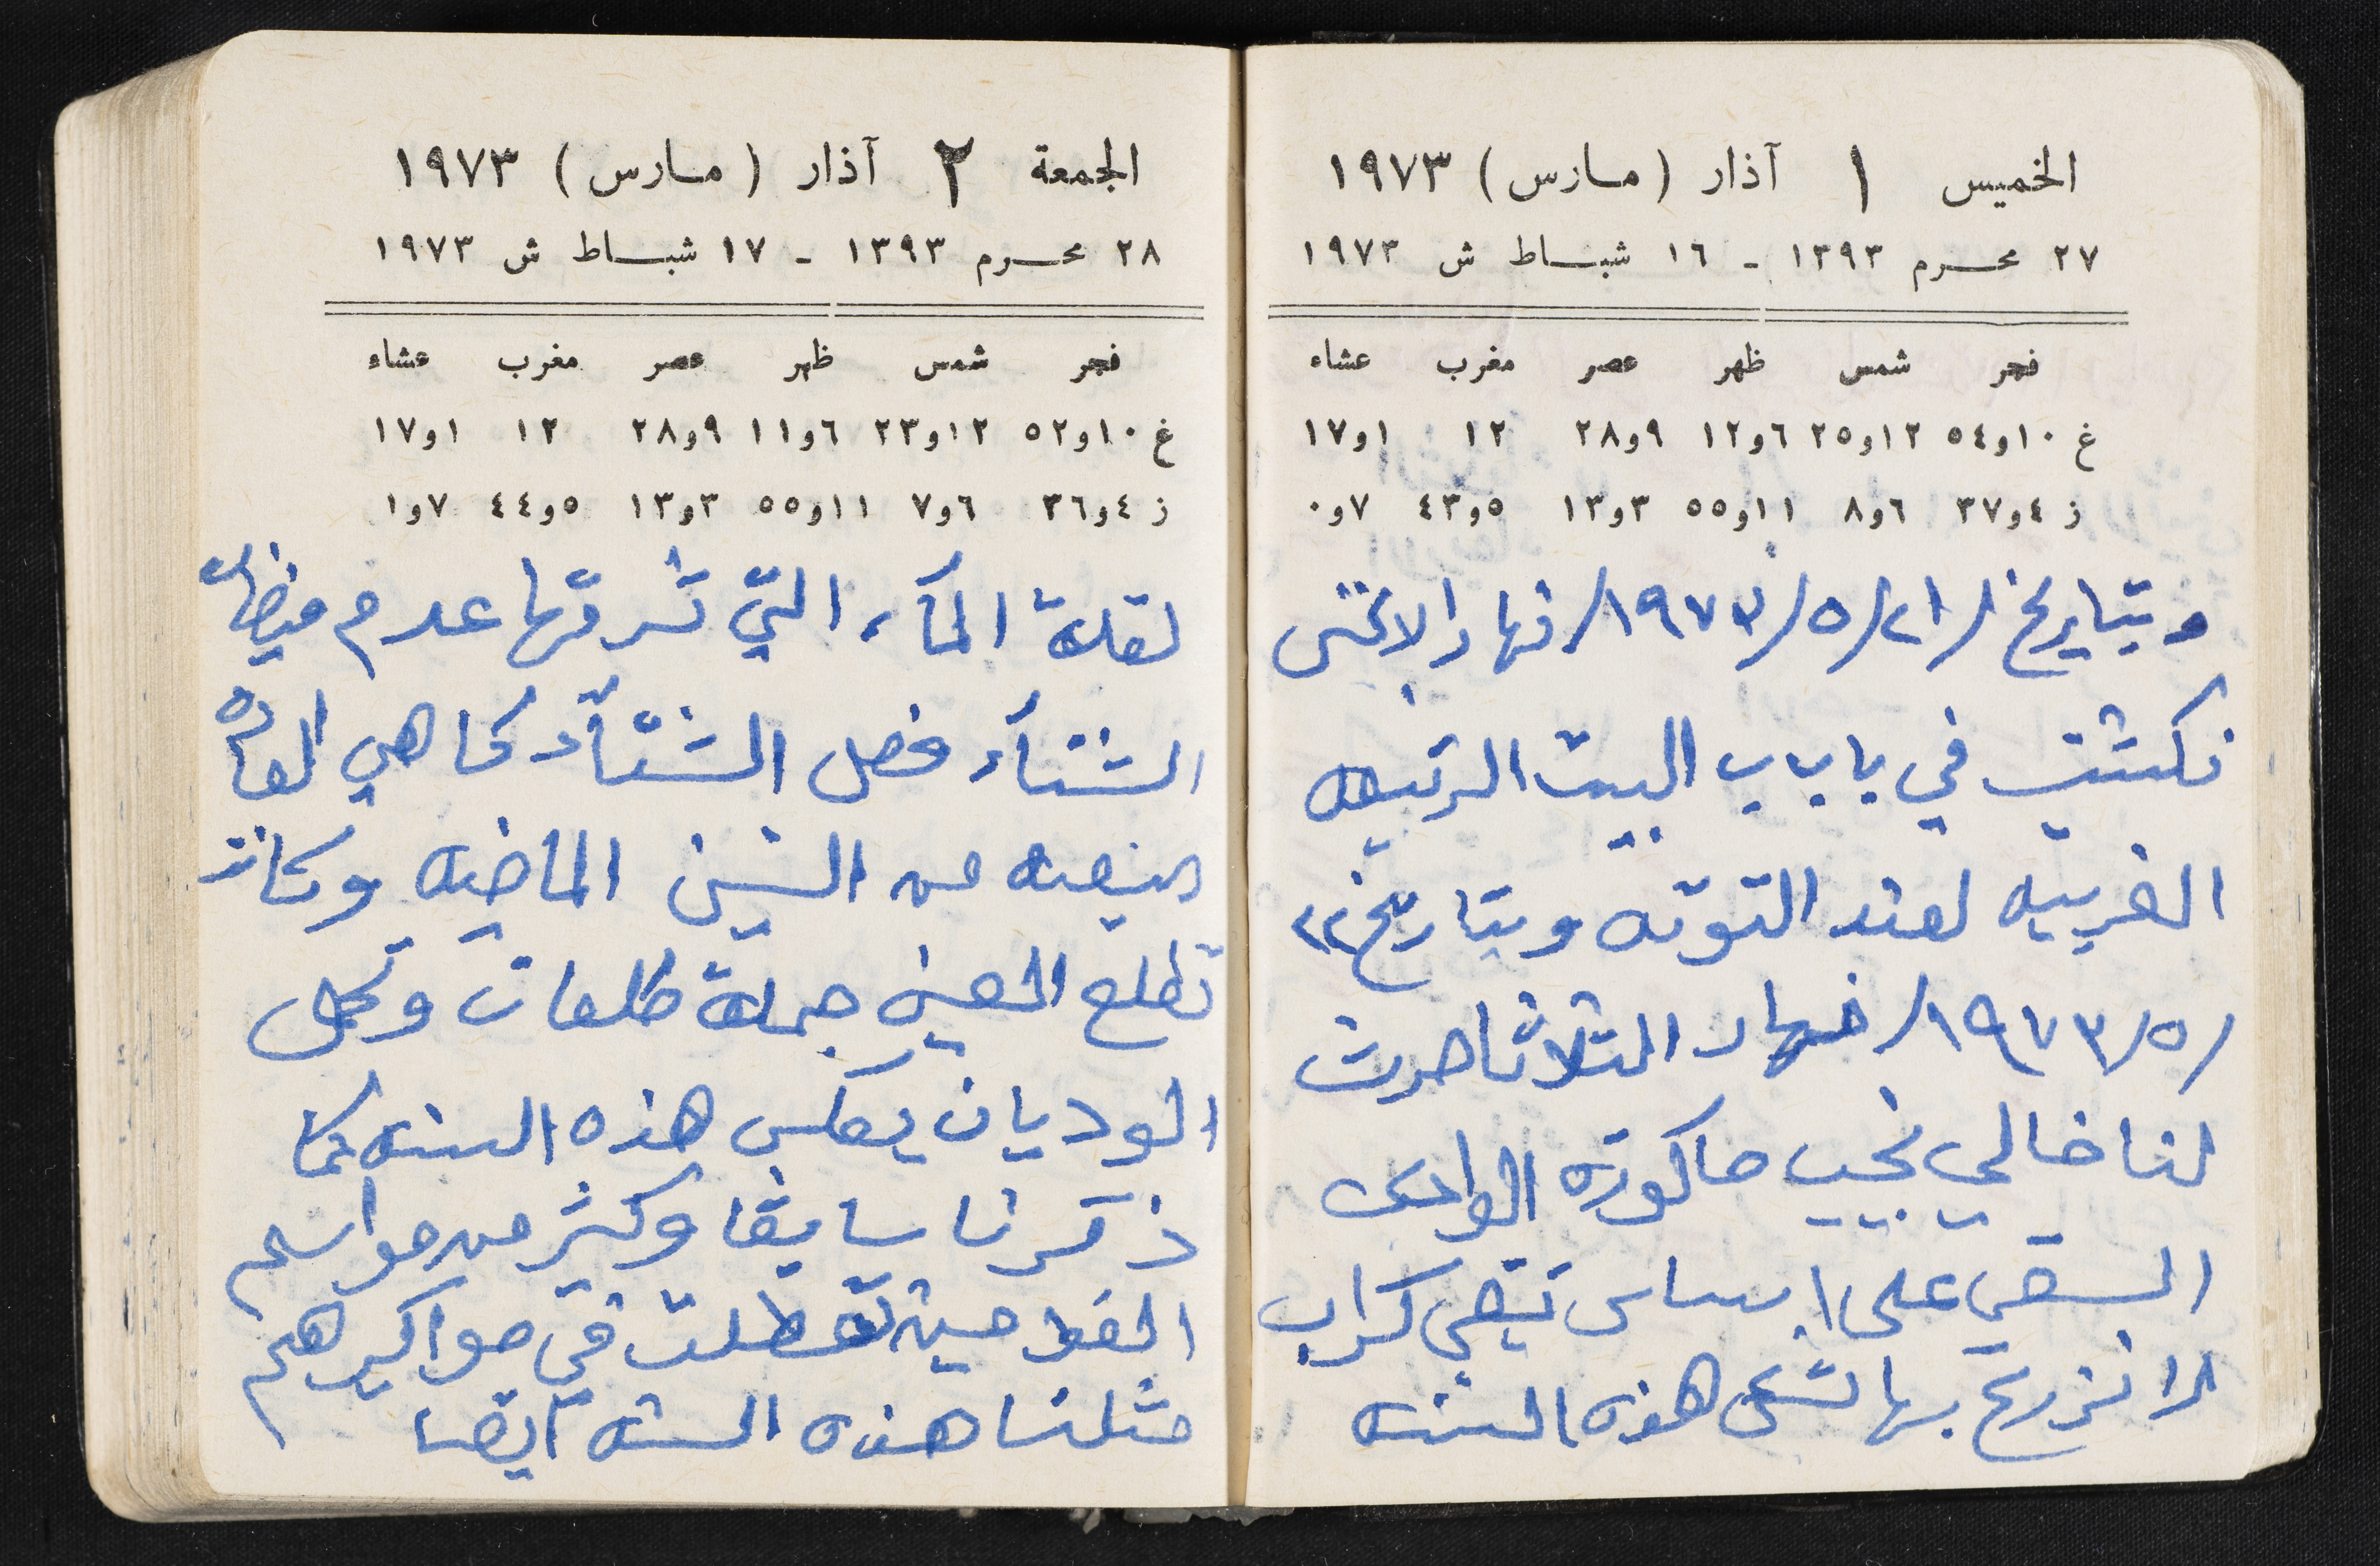 الخميس ١ آذار (مارس) ١٩٧٣
٢٧ محرم ١٣٩٣ - ١٦ شباط ش ١٩٧٣
فجر شمس ظهر عصر مغرب عشاء
غ ١٠و٥٤ ١٢و٢٥ ٦و١٢ ٩و٢٨ ١٢ ١و١٧
ز ٤و٣٧ ٦و٨ ١١و٥٥ ٣و١٣ ٥و٤٣ ٧و٠
وبتاريخ /٢١/٥/١٩٧٣/ نهار الاثنين
نكشت في باب البيت
الغربيه لعند التوته وبتاريخ ٢٢
/٥/١٩٧٣/ نهار الثلاثا حرث
لنا خالي نجيب حاكورة الوادي
السقي على اساس تبقى كراب
لا نزرع بها شي هذه السنه
الجمعة ٢ آذار (مارس) ١٩٧٣
٢٨ محرم ١٣٩٣ - ١٧ شباط ش ١٩٧٣
فجر شمس ظهر عصر مغرب عشاء
غ ١٠و٥٢ ١٢و٢٣ ٦و١١ ٩و٢٨ ١٢ ١و١٧
ز ٤و٣٦ ٦و٧ ١١و٥٥ ٣و١٣ ٥و٤٤ ٧و١
لقلة المآء التي عدم
الشتآء فصل الشتآء كما هي العاده
من السنين الماضيه وكانت
تطلع العين جملة طلعات وتحمل
الوديان بعكس هذه السنه كما
ذكرنا سابقا وكثير من مواسم
تعطلت في حواكيرهم
مثلنا هذه السنه ايضا